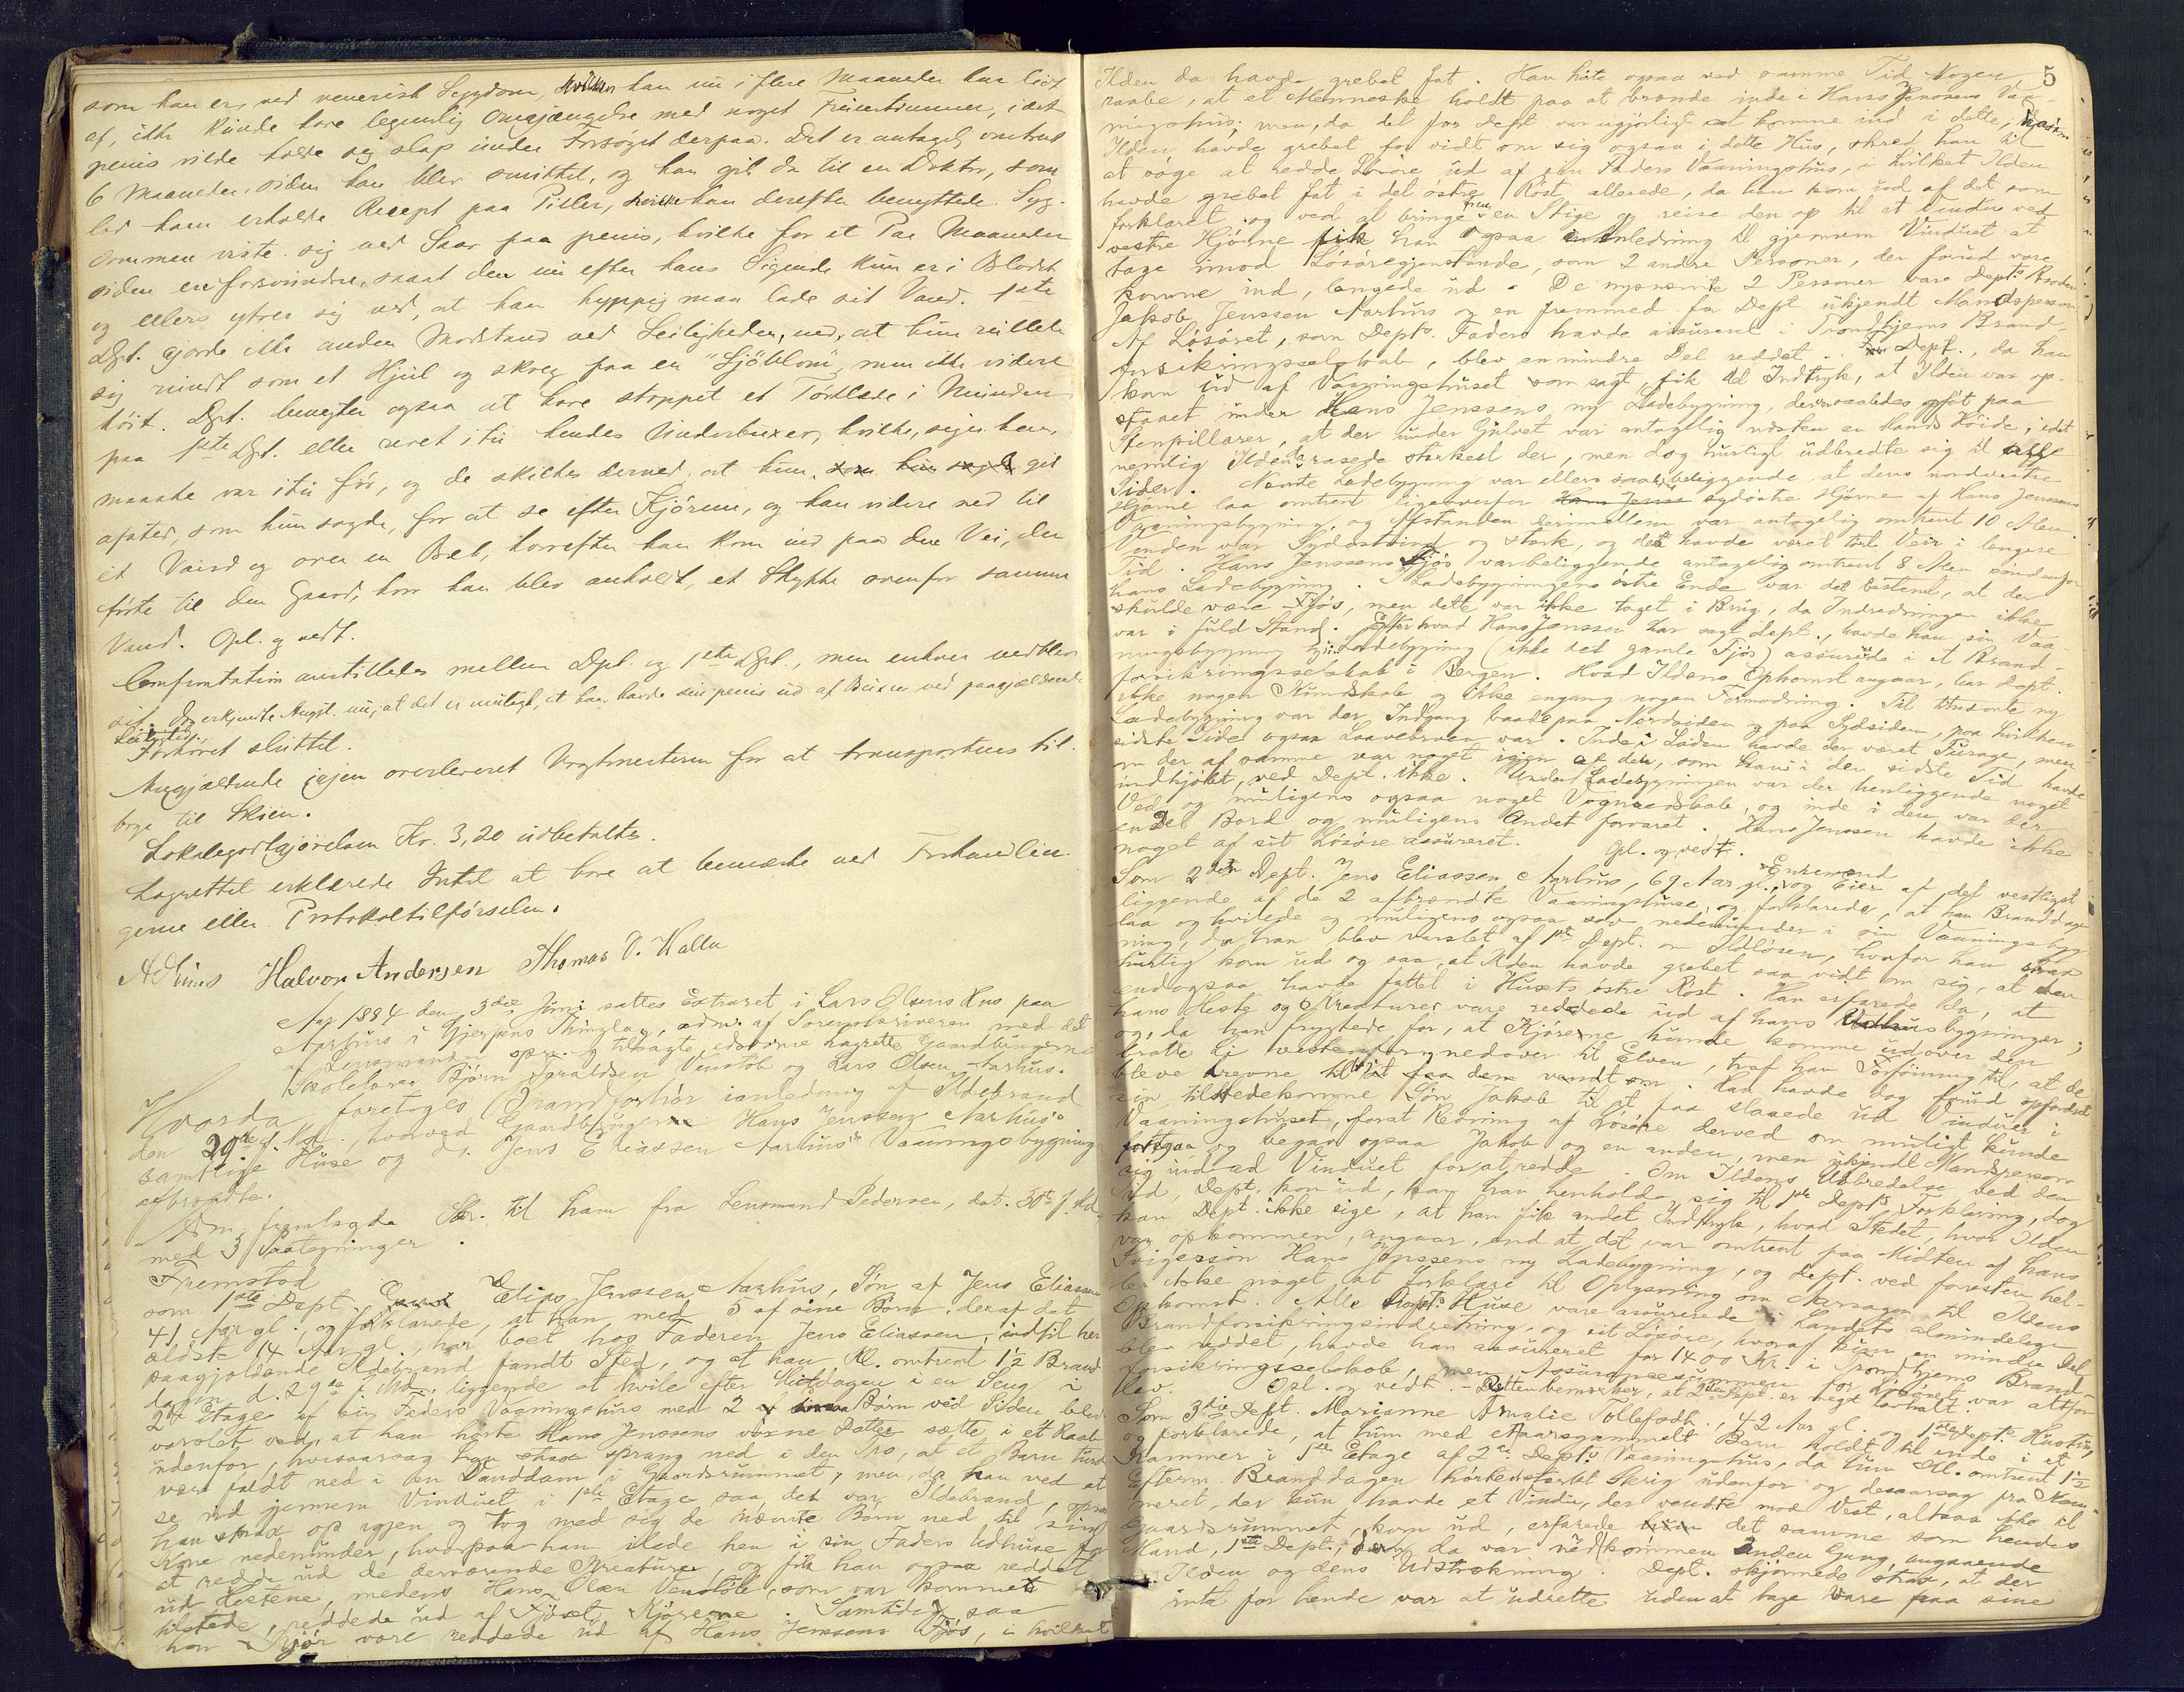 som han er, ved venerisk Sygdom, hvilken han nu i flere Maaneder har lidt
af, ikke kunde have legemlig Omgjængelse med noget Fruentimmer, idet
penis vilde holde sig slap under Forsøget derpaa. Det er antagelig omtrent
6 Maaneder, siden han blev smittet, og han gik da til en Doktor, som
lod ham erholde Recept paa Piller, hvilke han derefter benyttede. Syg-
dommen viste sig ved Saar paa penis, hvilke for et Par Maaneder
siden ere forsvundne, saaat den nu efter hans Sigende kun er i Blodet
og ellers ytrer sig ved, at han hyppig maa lade sit Vand. 1ste
Dpt. gjorde ikke anden Modstand ved Leiligheden, end, at hun rullede
sig rundt som et Hjul og skreg paa en "Sjöblom", men ikke videre
höit. Dpt. benegter ogsaa at have stoppet et Tørklæde i Munden
paa 1ste Dpt. eller revet itu hendes Underbuxer, hvilke, siger han,
maaske var itu før, og de skiltes derved, at hun gik
afsted, som hun sagde, for at se efter Kjörene, og han videre ned til
et Vand og over en Bæk, hvorefter han kom ind paa den Vei, der
førte til den Gaard, hvor han blev anholdt, et Stykke ovenfor samme
Vand. Opl. og vedt.
Confrontation anstilledes mellem Dpt. og 1ste Dpt., men enhver vedblev
sit. Dog erkjendte Angjt. nu, at det er muligt, at han havde sin penis ud af Buxen ved paagjældende
Leilighed.
Forhöret sluttet.
Angjældende igjen overleveret Vagtmesteren for at transporteres til-
bage til Skien.
Lokalegodtgjörelsen Kr. 3,20 udbetaltes.
Lagrettet erklærede Intet at have at bemærke ved Forhandlin-
gerne eller Protokoltilförselen.
Halvor Andersen Thomas O. Kalla
Aar 1884 den 3die Juni sattes Extraret i Lars Olsens Hus paa
Aarhus i Gjerpens Thinglag, adm. af Sorenskriveren med de
af Lensmanden opn. og tilsagte, edsvorne Lagrette Gaardbrugerne
Skolelærer Björn Haraldsen Venstöb og Lars Olsen Aarhus.
Hvorda foretoges Brandforhör ianledning af Ildebrand
den 29de f. Md., hvorved Gaardbrugerne Hans Jenssen Aarhus's
samtlige Huse og d. Jens Eliassen Aarhus's Vaaningsbygning
afbrændte.
Adm. fremlagde Skr. til ham fra Lensmand Pedersen, dat. 30te f. Md.,
med 3 Paategninger.
Fremstod
som 1ste Dept. Elias Jenssen Aarhus, Søn af Jens Eliassen
41 Aar gl., og forklarede, at han med 5 af sine Børn, deraf det
ældste 14 Aar gl., har boet hos Faderen Jens Eliassen, indtil her
paagjældende Ildebrand fandt Sted, og at han Kl. omtrent 1½ Brand-
dagen d. 29de f. Md. liggende at hvile efter Middagen i en Seng i
2den Etage af sin Faders Vaaningshus med 2 Børn ved Siden blev
varslet ved, at han hörte Hans Jenssens voxne Datter sætte i et Raab
udenfor, hvisaarsag han sprang ned i den Tro, at et Barn turde
være faldt ned i en Vanddam i Gaardsrummet, men, da han ved at
se ud gjennem Vinduet i 1ste Etage saa det var Ildebrand, sprang
han strax op igjen og tog med sig de nævnte Börn ned til sin
Kone nedenunder, hvorpaa han ilede hen i sin Faders Udhuse for
at redde ud de derværende Kreaturer, og fik han ogsaa reddet
ud Hestene, medens Hans Olsen Venstöb, som var kommet
tilstede, reddede ud af Fjøset Kjørene. Samtidig saa
han Kjör være reddede ud af Hans Jenssens Fjös, i hvilket
5
Ilden da havde grebet fat. Han hørte ogsaa ved samme Tid Nogen
raabe, at et Menneske holdt paa at brænde inde i Hans Jenssens Vaa-
ningshus; men, da det for Dept. var ugjörligt at komme ind i dette,
Ilden havde grebet for vidt om sig ogsaa i dette Hus, skred han til
at søge at redde Løsøre ud af sin Faders Vaaningshus, i hvilket Ilden
havde grebet fat i det østre Röst allerede, da han kom ud af det som
forklaret og ved at bringe frem en Stige og reise den op til et Vindu ved
vestre Hjörne fik han ogsaa anledning til gjennem Vinduet at
tage imod Løsøregjenstande, som 2 andre Personer, der forud vare
komne ind, langede ud. De nysnævnte 2 Personer vare Depts. Broder
Jakob Jenssen Aarhus og en fremmed for Dept. ukjendt Mandsperson.
Af Løsøret, som Depts. Fader havde assureret i Trondhjems Brand-
forsikringsselskab, blev en mindre Del reddet. Dept., da han
kom ud af Vaaningshuset som sagt, fik det Indtryk, at Ilden var op-
staaet under Hans Jenssens ny Ladebygning, der var saaledes opført paa
Stenpillarer, at der under Gulvet var antagelig næsten en Mands Höide, idet
nemlig Ilden rasede stærkest der, men dog hurtigt udbredte sig til alle
Sider. Nævnte Ladebygning var ellers saa beliggende, at dens nordvestre
Hjørne laa omtrent ligeoverfor sydöstre Hjørne af Hans Jenssens
Vaaningsbygning, og Afstanden derimellem var antagelig omtrent 10 Alen.
Vinden var Sydostvind og stærk, og det havde været tört Veir i længere
Tid. Hans Jenssens Fjøs var beliggende antagelig omtrent 8 Alen søndenfor
hans Ladebygning. I Ladebygningens östre Ende var det bestemt, at der
skulde være Fjøs, men dette var ikke taget i Brug, da Indredningen ikke
var i fuld Stand. Efter hvad Hans Jenssen har sagt Dept., havde han sin Vaa-
ningsbygning og sin Ladebygning (ikke det gamle Fjös) assurerede i et Brand-
forsikringsselskab i Bergen. Hvad Ildens Opkomst angaar, har Dept.
ikke nogen Kundskab og ikke engang nogen Formodning. Til Hansens ny
Ladebygning var der Indgang baade paa Nordsiden og paa Sydsiden, paa hvilken
sidste Side ogsaa Laavebroen var. Inde i Laden havde der været Furage, men
om der af samme var noget igjen af den, som Hans i den sidste Tid havde
indkjöbt, ved Dept. ikke. Under Ladebygningen var der henliggende noget
Ved og muligens ogsaa noget Vognredskab, og inde i den var der
endel Bord og muligens Andet forvaret. Hans Jenssen havde ikke
noget af sit Løsøre assureret. Opl. og vedt.
Som 2den Dept. Jens Eliassen Aarhus, 69 Aar gl., Enkemand og Eier af det vestligst
liggende af de 2 afbrændte Vaaningshuse, og forklarede, at han Branddagen
laa og hvilede og muligens ogsaa sov nedenunder i sin Vaaningsbyg-
ning, da han blev varslet af 1ste Dept. om Ildløsen, hvorfor han strax
hurtig kom ud og saa, at Ilden havde grebet saa vidt om sig, at den
endogsaa havde fattet i Husets østre Röst. Han erfarede da, at
hans Heste og Kreaturer vare reddede ud af hans Udhusbygninger;
og, da han frygtede for, at Kjørene kunde komme udover den
bratte Li vestenfor nedover til Elven, traf han Føining til, at de
bleve drevne til . Han havde dog forud opfordret
sin tilstedekomne Søn Jakob til at faa slaaede ud Vinduer i
Vaaningshuset, forat Redning af Løsøre derved om muligt kunde
foregaa og begav ogsaa Jakob og en anden, men ukjendt Mandsperson
sig ind ad Vinduet for at redde. Om Ildens Udbredelse ved den
Tid, Dept. kom ud, kan han henholde sig til 1ste Depts. Forklaring, dog
kan Dept. ikke sige, at han fik andet Indtryk, hvad Stedet, hvor Ilden
var opkommen, angaar, end at det var omtrent paa Midten af hans
Svigersön Hans Jenssens ny Ladebygning, og Dept. ved foresten hel-
ler ikke noget at forklare til Oplysning om Aarsagen til Ildens
Opkomst. Alle Depts. Huse vare assurerede i Landets almindelige
Brandforsikringsindretning, og sit Løsøre, hvoraf kun en mindre Del
blev reddet, havde han assureret for 1400 Kr. i Trondhjems Brand-
forsikringsselskab, men Assurancesummen for Løsøret var altfor
lav. Opl. og vedt. — Retten bemærker, at 2den Dept. er meget tunghørt.
Som 3die Dept. Marianne Amalie Tollefsdt., 42 Aar gl. og 1ste Depts. Hustru,
og forklarede, at hun med et Aarsgammelt Barn holdt til inde i et
Kammer i 1ste Etage af 2den Depts. Vaaningshus, da hun Kl. omtrent 1½
Efterm. Branddagen hørte et stærkt Skrig udenfor og desaarsag fra Kam-
meret, der kun havde et Vindu, der vendte mod Vest, altsaa ikke til
Gaardsrummet, kom ud, erfarede det samme som hendes
Mand, 1ste Dept., der da var nedkommen anden Gang, angaaende
Ilden og dens Udstrækning. Dept. skjønnede strax, at der
intet for hende var at udrette uden at tage Vare paa sine